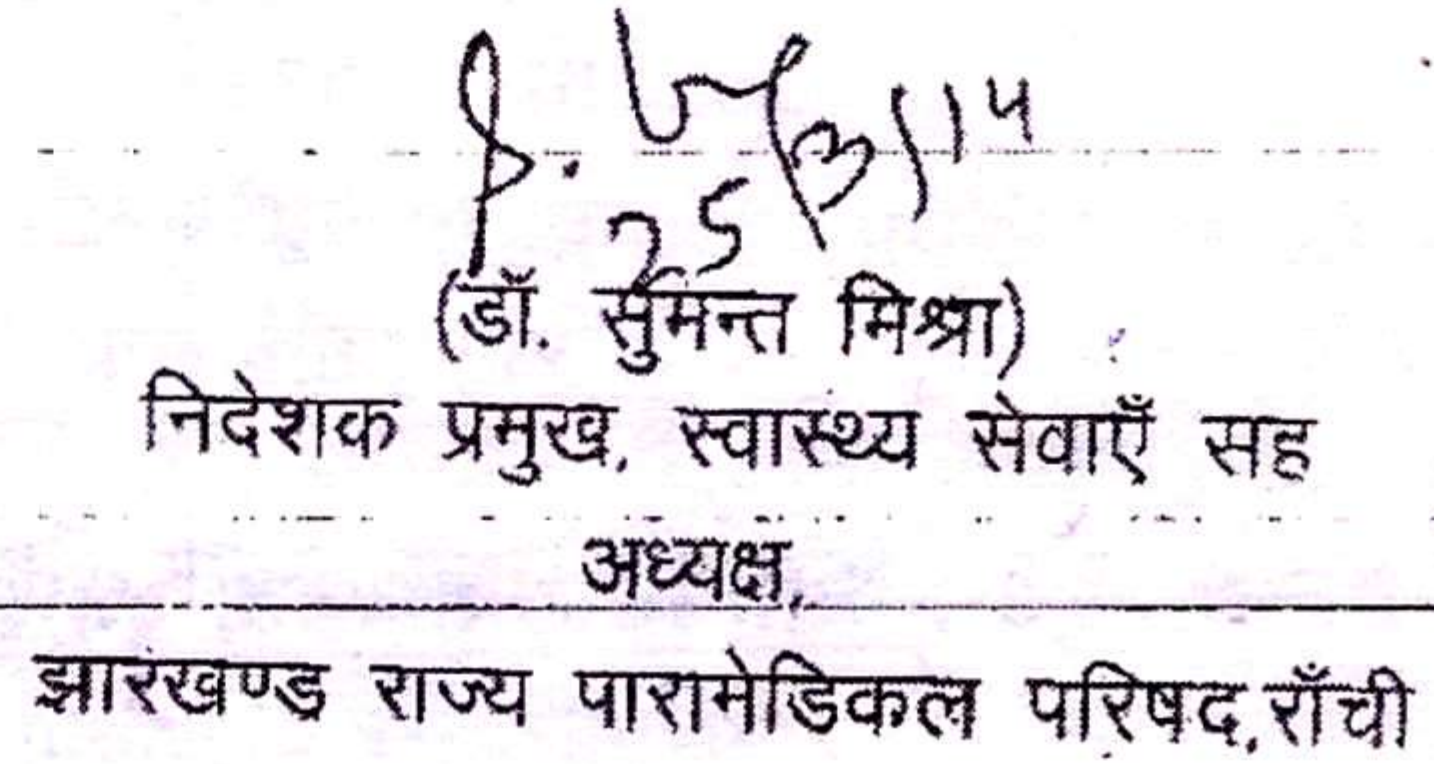 25/3/14
(डॉ. सुमन्त मिश्रा)
निदेशक प्रमुख, स्वास्थ्य सेवाएँ सह
अध्यक्ष,
झारखण्ड राज्य पारामेडिकल परिषद,राँची